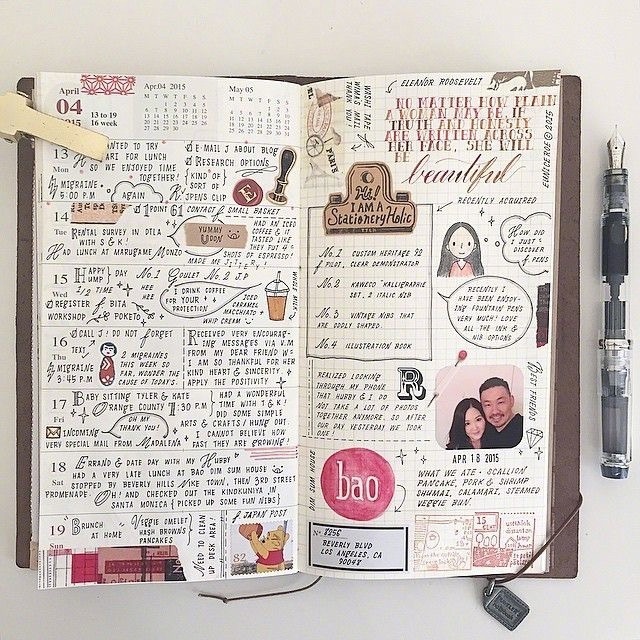 April
04
2015
13 to 19
16 week
Apr.04 2015
May 05
13
Mon
WANTED TO TRY
FOR LUNCH
SO WE ENJOYED TIME
TOGETHER!
MIGRAINE
5:00 P.M
AGAIN
E-MAIL J ABOUT BLOG
RESEARCH OPTIONS
KIND OF
SORT OF
PEN'S CLIP
E
14
Tue
1 POINT
61
CONTACT SMALL BASKET
RENTAL SURVEY IN DTLA
WITH S & K!
HAD LUNCH AT MARUGAME MONZO
YUMMY
UDON
HAD AN ICED
COFFEE & IT
TASTED LIKE
THEY PUT 4
SHOTS OF ESPRESSO!
MADE ME JITTERY!
15
Wed
HAPPY HUMP DAY
1/2 TIME
HEE
HEE
REGISTER BITA
WORKSHOP POKETO
No.1 GOULET No.2 JP
I DRINK COFFEE
FOR YOUR
PROTECTION
ICED
CARAMEL
MACCHIATO +
WHIP CREAM
16
Thu
CALL J! DO NOT FORGET
TEXT
MIGRAINE
3:45 P.M
2 MIGRAINES
THIS WEEK SO
FAR, WONDER THE
CAUSE OF TODAY'S.
RECEIVED VERY ENCOURAG-
ING MESSAGES VIA V.M
FROM MY DEAR FRIEND W
I AM SO THANKFUL FOR HER
KIND HEART & SINCERITY.
APPLY THE POSITIVITY
17
Fri
BABY SITTING TYLER & KATE
ORANGE COUNTY 1:30 P.M
OH MY
THANK YOU!
INCOMING
VERY SPECIAL MAIL FROM MADALENA
HAD A WONDERFUL
TIME WITH T & K!
DID SOME SIMPLE
ARTS & CRAFTS / HUNG OUT.
I CANNOT BELIEVE HOW
FAST THEY ARE GROWING!
18
Sat
ERRAND & DATE DAY WITH MY HUBBY
HAD A VERY LATE LUNCH AT BAO DIM SUM HOUSE
STOPPED BY BEVERLY HILLS NIKE TOWN, THEN 3RD STREET
PROMENADE. OH! AND CHECKED OUT THE KINOKUNIYA IN
SANTA MONICA PICKED UP SOME FUN NIBS
19
Sun
BRUNCH
AT HOME
VEGGIE OMELET
HASH BROWNS
PANCAKES
NEED TO CLEAN
UP DESK AREA!
JAPAN POST
82
ELEANOR ROOSEVELT
NO MATTER HOW PLAIN
A WOMAN MAY BE, IF
TRUTH AND HONESTY
ARE WRITTEN ACROSS
HER FACE, SHE WILL
BE
beautiful
EUNICE ROE © 2015
PARIS
Hi!
I AM A
StationeryHolic
RECENTLY ACQUIRED
No. 1 CUSTOM HERITAGE 92
PILOT, CLEAR DEMONSTRATOR
No. 2 KAWECO "KALLIGRAPHIE"
SET, 2 ITALIC NIB
No. 3 VINTAGE NIBS THAT
ARE ODDLY SHAPED
No. 4 ILLUSTRATION BOOK
HOW DID
I JUST
DISCOVER
PENS
RECENTLY I
HAVE BEEN ENJOY-
ING FOUNTAIN PENS
VERY MUCH! LOVE
ALL THE INK &
NIB OPTIONS
REALIZED LOOKING
THROUGH MY PHONE
THAT HUBBY & I DO
NOT TAKE A LOT OF PHOTOS
TOGETHER ANYMORE. SO AFTER
OUR DAY YESTERDAY WE TOOK
ONE!
R
BEST FRIEND
APR 18 2015
DIM SUM HOUSE
bao
WHAT WE ATE - SCALLION
PANCAKE, PORK & SHRIMP
SHUMAI, CALAMARI, STEAMED
VEGGIE BUN.
No. 8256
BEVERLY BLVD
LOS ANGELES, CA
90048